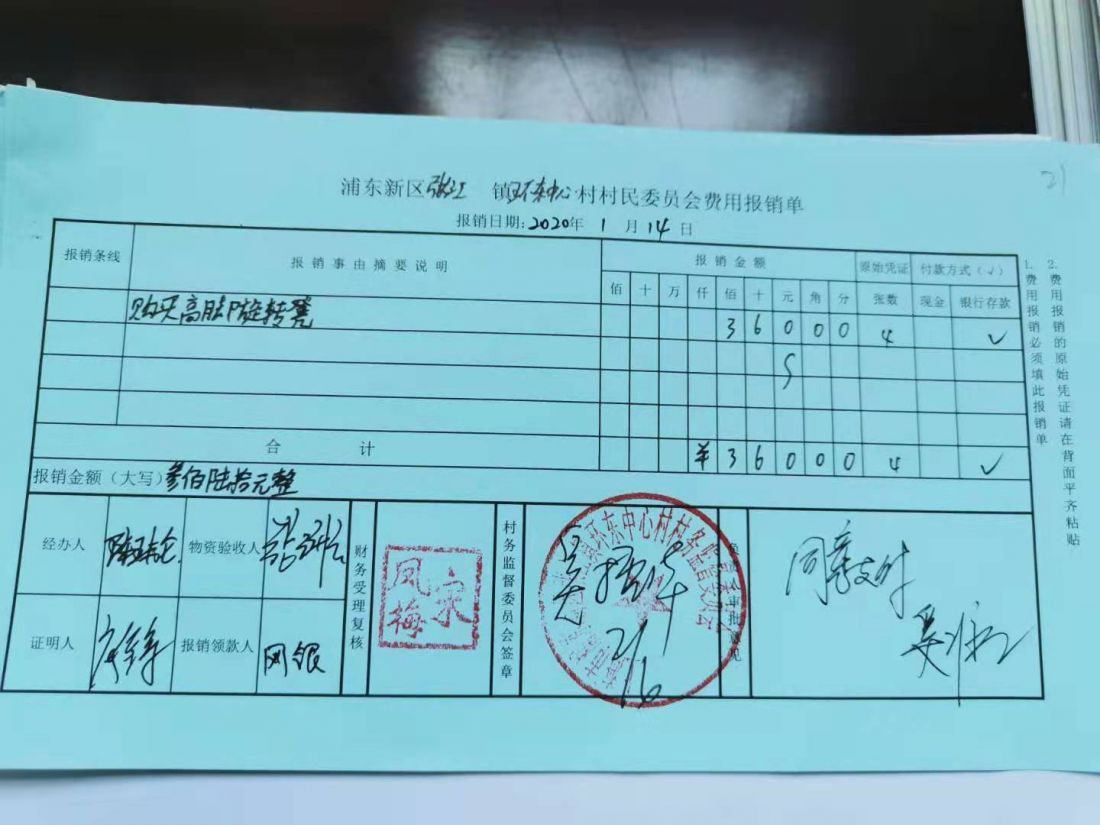 21
浦东新区张江 镇环东中心村村民委员会费用报销单
报销日期:2020年 1 月 14 日
报销条线 报销事由摘要说明 报销金额 原始凭证 付款方式(√)
佰 十 万 仟 佰 十 元 角 分 张数 现金 银行存款
购买高脚旋转凳 3 6 0 0 0 4 √
合 计 ¥ 3 6 0 0 0 4 √
报销金额(大写)叁佰陆拾元整
经办人 物资验收人 财务受理复核 村务监督委员会签章 审批意见
证明人 报销领款人 网银
宋凤梅
环东中心村村务监督委员会
2/6
同意支付
1. 费用报销必须填此报销单
2. 费用报销的原始凭证请在背面平齐粘贴